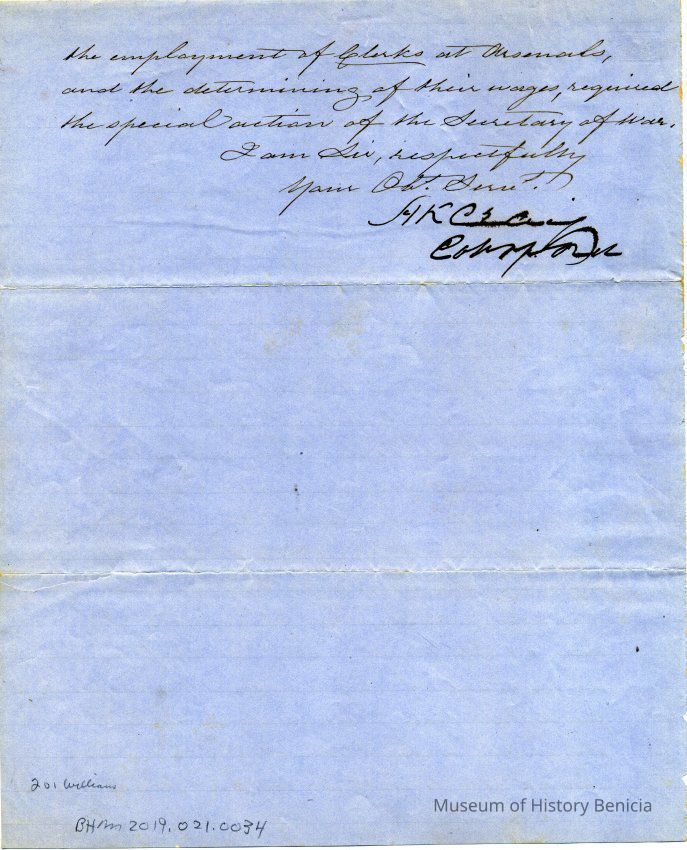 the employment of Clerks at Arsenals,
and the determining of their wages, required
the special action of the Secretary of War.
I am Sir, respectfully
Your Obt. Servt.
H K Craig
Col. of Ord
201 Williams
BHM 2019.021.0034
Museum of History Benicia